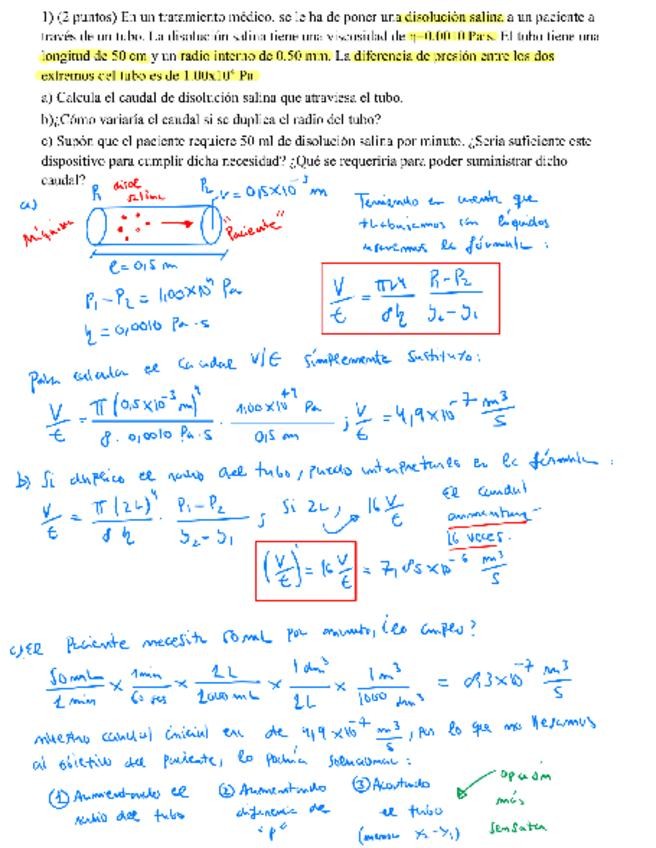 1) (2 puntos) En un tratamiento médico, se le ha de poner una disolución salina a un paciente a
través de un tubo. La disolución salina tiene una viscosidad de η=0.0010 Pa·s. El tubo tiene una
longitud de 50 cm y un radio interno de 0.50 mm. La diferencia de presión entre los dos
extremos del tubo es de 1.00x10⁴ Pa
a) Calcula el caudal de disolución salina que atraviesa el tubo.
b)¿Cómo variaría el caudal si se duplica el radio del tubo?
c) Supón que el paciente requiere 50 ml de disolución salina por minuto. ¿Sería suficiente este
dispositivo para cumplir dicha necesidad? ¿Qué se requeriría para poder suministrar dicho
caudal?
a) P₁ disol salina P₂ r = 0,5×10⁻³ m
"Paciente"
l = 0,5 m
P₁ - P₂ = 1,00×10⁴ Pa
η = 0,0010 Pa·s
Teniendo en cuenta que
trabajamos con líquidos
usaremos la fórmula:
V/t = πr⁴/8η P₁-P₂/y₂-y₁
Para calcular el caudal V/t simplemente sustituyo:
V/t = π(0,5×10⁻³ m)⁴/8·0,0010 Pa·s · 1,00×10⁺⁴ Pa/0,5 m ; V/t = 4,9×10⁻⁷ m³/s
b) Si duplico el radio del tubo, puedo interpretarlo en la fórmula:
V/t = π(2r)⁴/8η · P₁-P₂/y₂-y₁ ; Si 2r, 16 V/t
El caudal
aumentaría
16 veces.
(V/t)' = 16 V/t = 7,85×10⁻⁶ m³/s
c) El paciente necesita 50 mL por minuto, ¿lo cumplo?
50 mL/1 min × 1 min/60 seg × 1L/1000 mL × 1 dm³/1L × 1 m³/1000 dm³ = 8,3×10⁻⁷ m³/s
nuestro caudal inicial era de 4,9×10⁻⁷ m³/s, por lo que no llegamos
al objetivo del paciente, lo podría solucionar:
① Aumentando el
radio del tubo
② Aumentando
diferencia de
"p"
③ Acortando
el tubo
(menor y₂-y₁)
opción
más
sensata